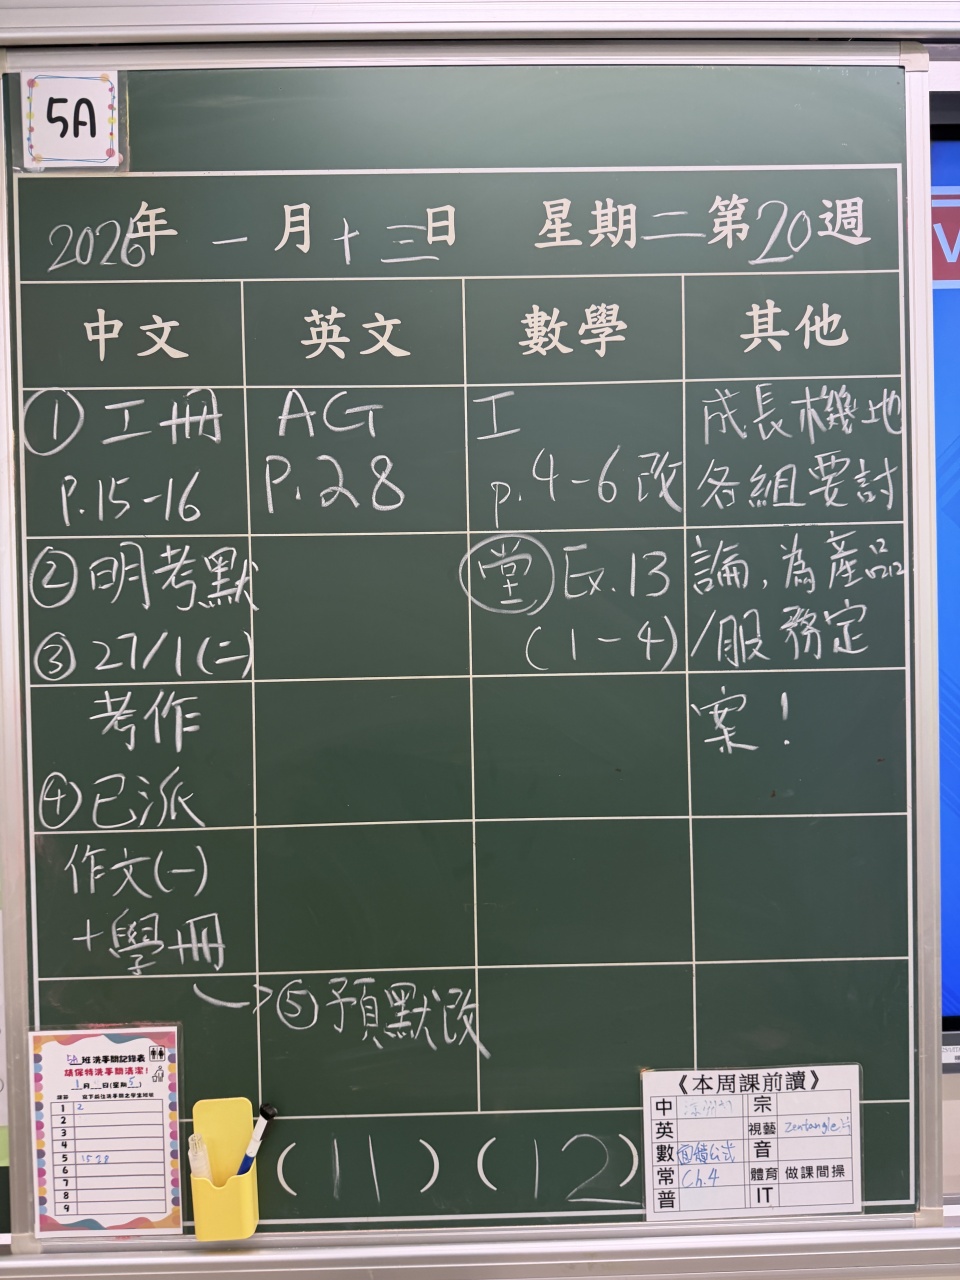 5A
2026年 一月十三日 星期二第20週
中文 英文 數學 其他
①工冊
P.15-16
②明考默
③27/1(二)
考作
④已派
作文(一)
+學冊
→⑤預默改
AG
P.28
工
p.4-6改
堂 Ex.13
(1-4)
成長機地
各組要討
論,為產品
/服務定
案!
5A班洗手間記錄表
請保持洗手間清潔!
1月 日(星期5)
1 2
2
3
4
5 15 28
6
7
8
9
(11) (12)
《本周課前讀》
中 宗
英 視藝 Zentangle
數 面積公式 音
常 Ch.4 體育 做課間操
普 IT
V